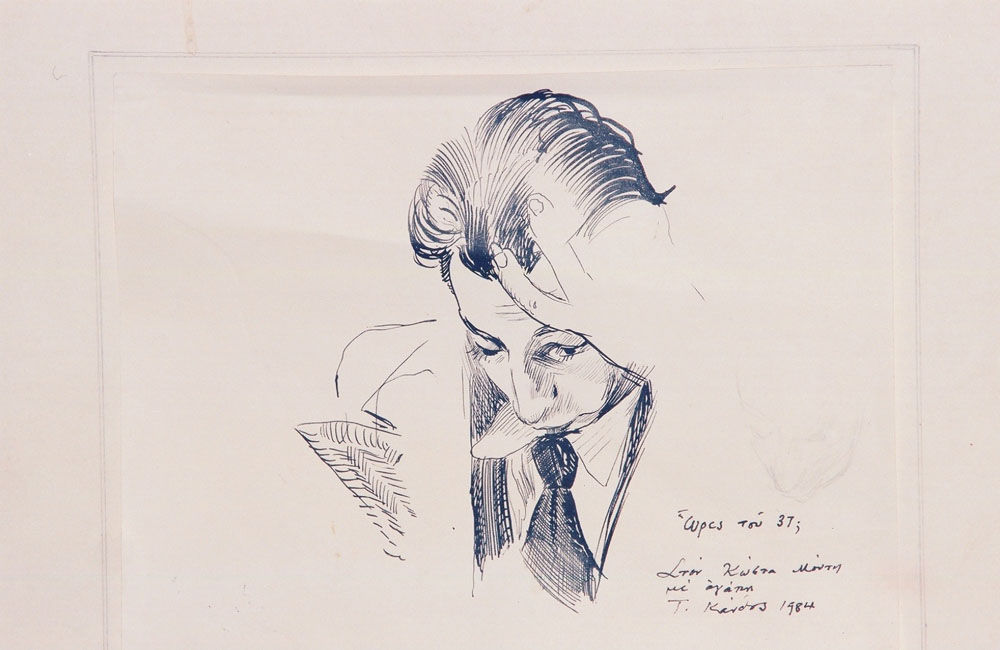 Ὧρες τοῦ 37;
Στὸν Κώστα Μόντη
μὲ ἀγάπη
Τ. Κάνθος 1984